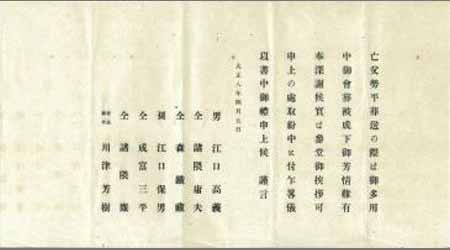 亡父勞平葬送の際は御多用
中御會葬被成下御芳情難有
奉深謝候實は參堂御挨拶可
申上の處取紛中に付乍畧儀
以書中御禮申上候 謹言
大正八年四月五日
男 江口高義
仝 諸隈庸夫
仝 森鐵藏
孫 江口保男
仝 成富三平
仝 諸隈
川津芳樹